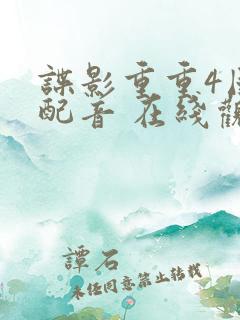 諜影重重4國
配音 在线觀
譚石
未任同意禁止转载